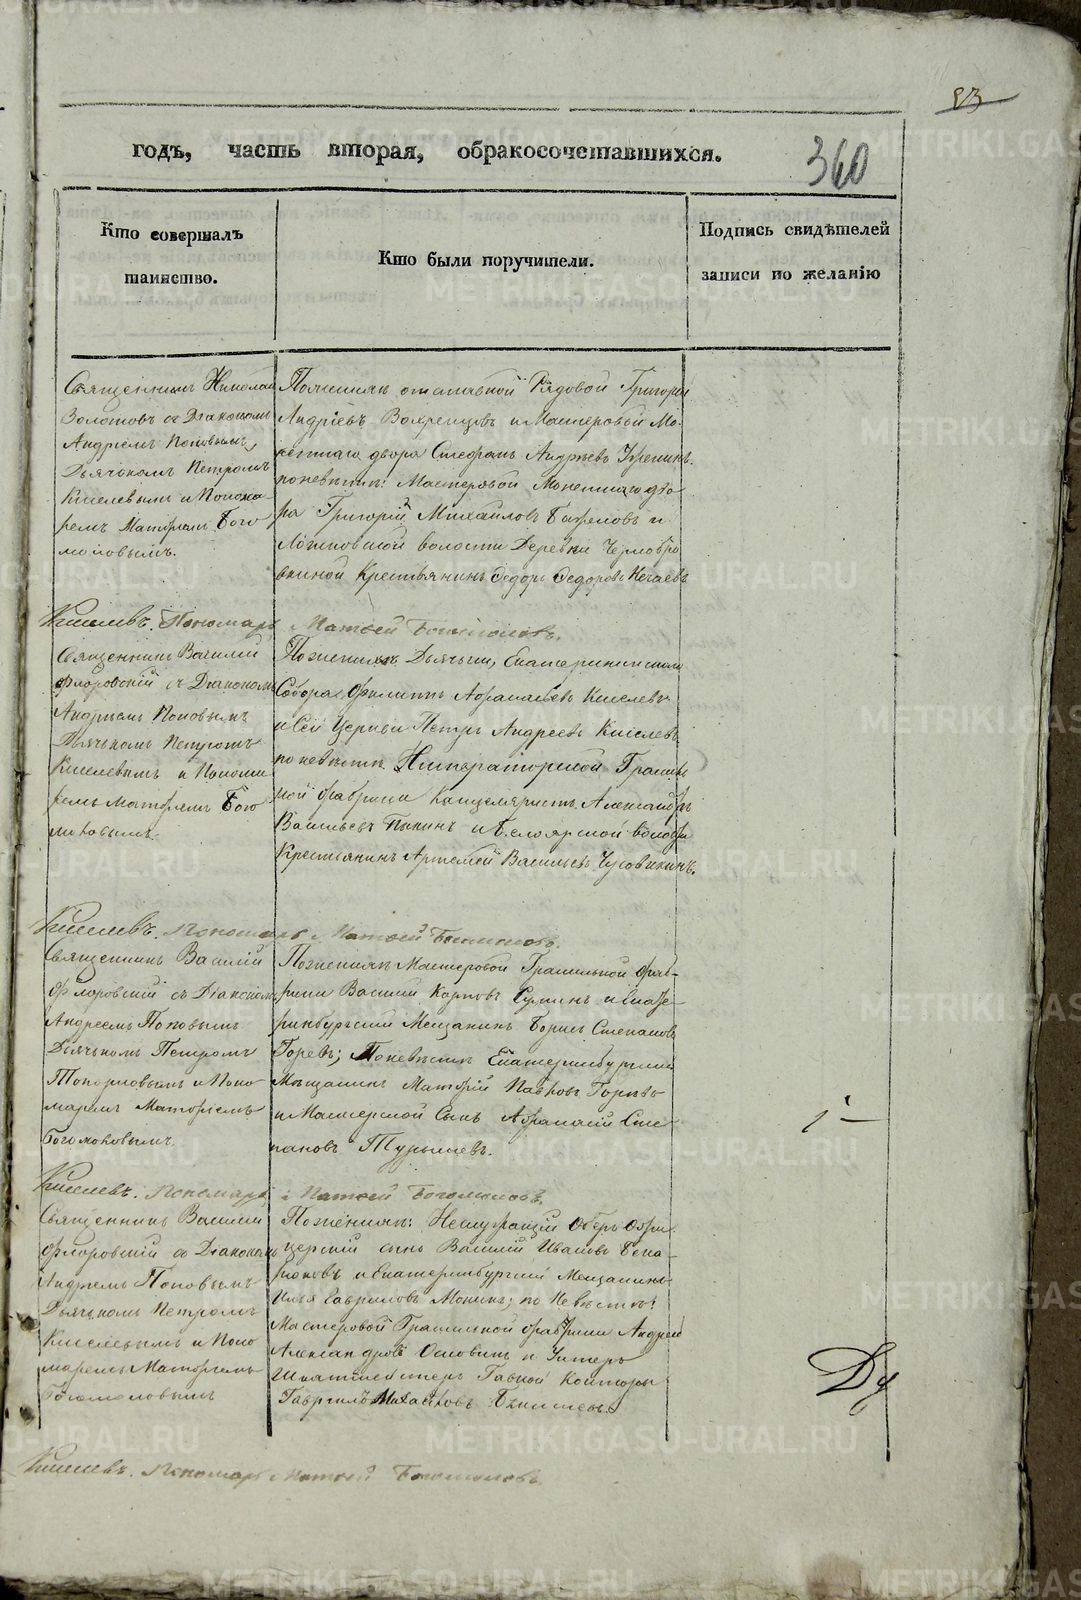 83
годъ, часть вторая, обракосочетавшихся.
360
Кто совершалъ таинство.
Кто были поручители.
Подпись свидѣтелей записи по желанію
Священникъ Николай
Золотовъ съ Діакономъ
Андреемъ Поповымъ,
Дьячькомъ Петромъ
Киселевымъ и Понома-
ремъ Матфеемъ Бого
моловымъ.
По женихѣ отставной Рядовой Григорій
Андріевъ и Мастеровой Мо-
нетнаго двора Стефанъ Андреевъ
по невѣстѣ: Мастеровой Монетнаго дво
ра Григорій Михайловъ и
волости Деревни
Крестьянинъ Федоръ Федоровъ Нечаевъ
Киселевъ. Пономарь Матѳей Богомоловъ.
Священникъ Василій
Флоровскій съ Діакономъ
Андреемъ Поповымъ
Дьячькомъ Петромъ
Киселевымъ и Понома
ремъ Матфеемъ Бого
моловымъ.
По женихѣ Дьячьки, Екатерининскаго
Собора Филиппъ Киселевъ
и Сей Церкви Петръ Андреевъ Киселевъ
по невѣстѣ Императорской Граниль
ной фабрики Канцеляристъ Александръ
Васильевъ и Белоярской волости
Крестьянинъ Артемей Васильевъ Чусовикинъ.
Киселевъ. Пономарь Матѳей Богомоловъ.
Священникъ Василій
Флоровскій съ Діакономъ
Андреемъ Поповымъ
Дьячькомъ Петромъ
и Поно-
маремъ Матфеемъ
Богомоловымъ.
По женихѣ Мастеровой Гранильной фаб-
рики Василій Карповъ и Екате-
ринбургскій Мещанинъ Борисъ Степановъ
По невѣстѣ Екатеринбургскій
Мѣщанинъ Матфій Павловъ
и Мастерской Сынъ Афанасій Сте
пановъ Турышевъ.
Киселевъ. Пономарь Матѳей Богомоловъ.
Священникъ Василій
Флоровскій съ Діакономъ
Андреемъ Поповымъ
Дьячькомъ Петромъ
Киселевымъ и Поно
маремъ Матфеемъ
Богомоловымъ
По женихѣ: Неслужащій Оберъ Офи
церскій сынъ Василій Ивановъ
и Екатеринбургскій Мещанинъ
Илья Гавриловъ Мокинъ; по Невѣстѣ:
Мастеровой Гранильной фабрики Андрей
Александровъ и Унтеръ
Шихтмейстеръ Главной Конторы
Гаврило Михайловъ
Киселевъ. Пономарь Матѳей Богомоловъ.
METRIKI.GASO-URAL.RU